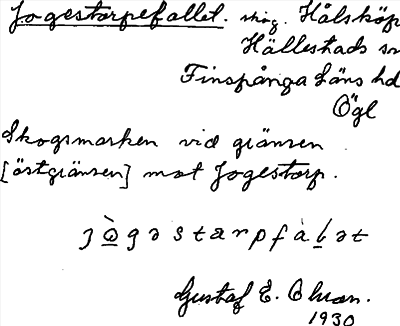 Jogestorpefallet. skog. Hälsköp
Hällestads sn
Finspånga läns hd
Ögl
Skogsmarken vid gränsen
[östgränsen] mot Jogestorp.
Gustaf E. Olson.
1930